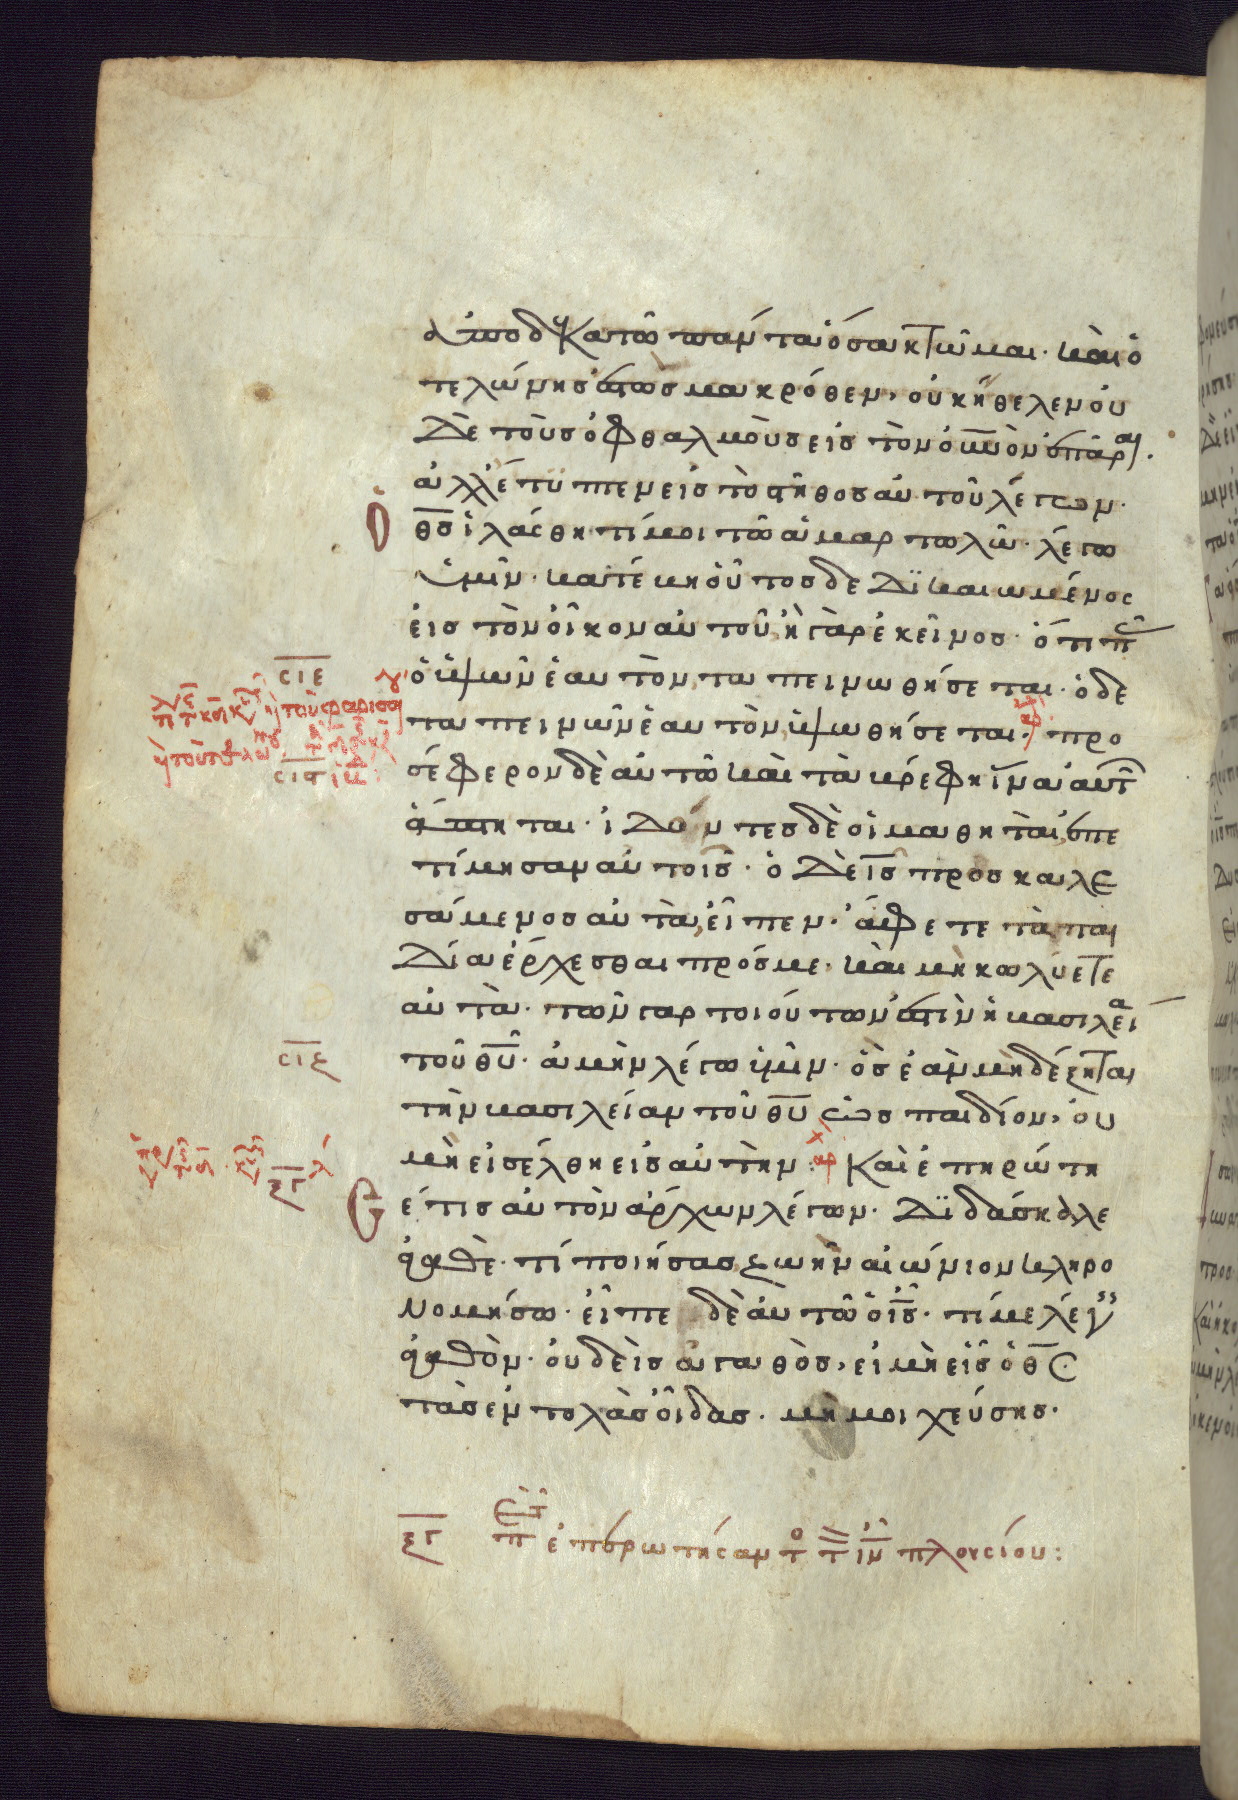 ἀποδεκατῶ πάντα ὅσα κτῶμαι· καὶ ὁ
τελώνης ἑστὼς μακρόθεν, οὐκ ἤθελεν οὐ
δὲ τοὺς ὀφθαλμοὺς εἰς τὸν οὐνὸν ἐπᾶραι·
ἀλλ' ἔτυπτεν εἰς τὸ στῆθος αὐτοῦ λέγων·
ὁ θς ἱλάσθητί μοι τῶ ἁμαρτωλῶ· λέγω
ὑμῖν· κατέβη οὗτος δεδικαιωμένος
εἰς τὸν οἶκον αὐτοῦ ἢ γὰρ ἐκεῖνος· ὅτι π
σιε
ὁ ὑψῶν ἑαυτὸν, ταπεινωθήσεται· ὁ δὲ
ταπεινῶν ἑαυτὸν, ὑψωθήσεται· προ
σις
σέφερον δὲ αὐτῶ καὶ τὰ βρέφη ἵνα αὐτ
ἅπτηται· ἰδόντες δὲ οἱ μαθηταὶ, ἐπε
τίμησαν αὐτοῖς· ὁ δὲ ις προσκαλε
σάμενος αὐτὰ, εἶπεν· ἄφετε τὰ παι
δία ἔρχεσθαι πρός με· καὶ μὴ κωλύετε
αὐτὰ· τῶν γὰρ τοιούτων ἐστὶν ἡ βασιλεία
σιζ
τοῦ θυ· ἀμὴν λέγω ὑμῖν· ὃς ἐὰν μὴ δέξηται
τὴν βασιλείαν τοῦ θυ ὡς παιδίον, οὐ
μὴ εἰσέλθη εἰς αὐτήν· Καὶ ἐπηρώτη
ξγ
σέ τις αὐτὸν ἄρχων λέγων· διδάσκαλε
ἀγαθὲ· τί ποιήσας ζωὴν αἰώνιον κληρο
νομήσω· εἶπε δὲ αὐτῶ ὁ ις· τί με λέγεις
ἀγαθὸν· οὐδεὶς ἀγαθὸς, εἰ μὴ εἷς ὁ θς·
τὰς ἐντολὰς οἶδας· μὴ μοιχεύσης·
ξγ π ἐπερωτήσαντο τ ιν πλουσίου: